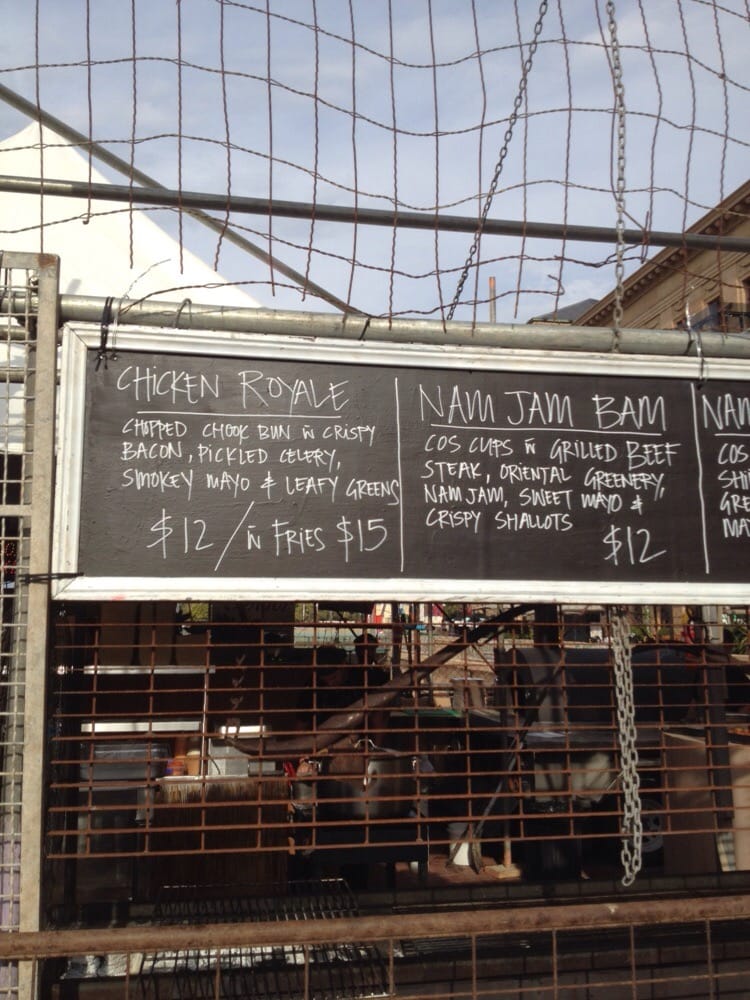 CHICKEN ROYALE
CHOPPED CHOOK BUN W̄ CRISPY
BACON, PICKLED CELERY,
SMOKEY MAYO & LEAFY GREENS
$12 / W̄ FRIES $15
NAM JAM BAM
COS CUPS W̄ GRILLED BEEF
STEAK, ORIENTAL GREENERY,
NAM JAM, SWEET MAYO &
CRISPY SHALLOTS
$12
NAM
COS
SHI
GRE
MA